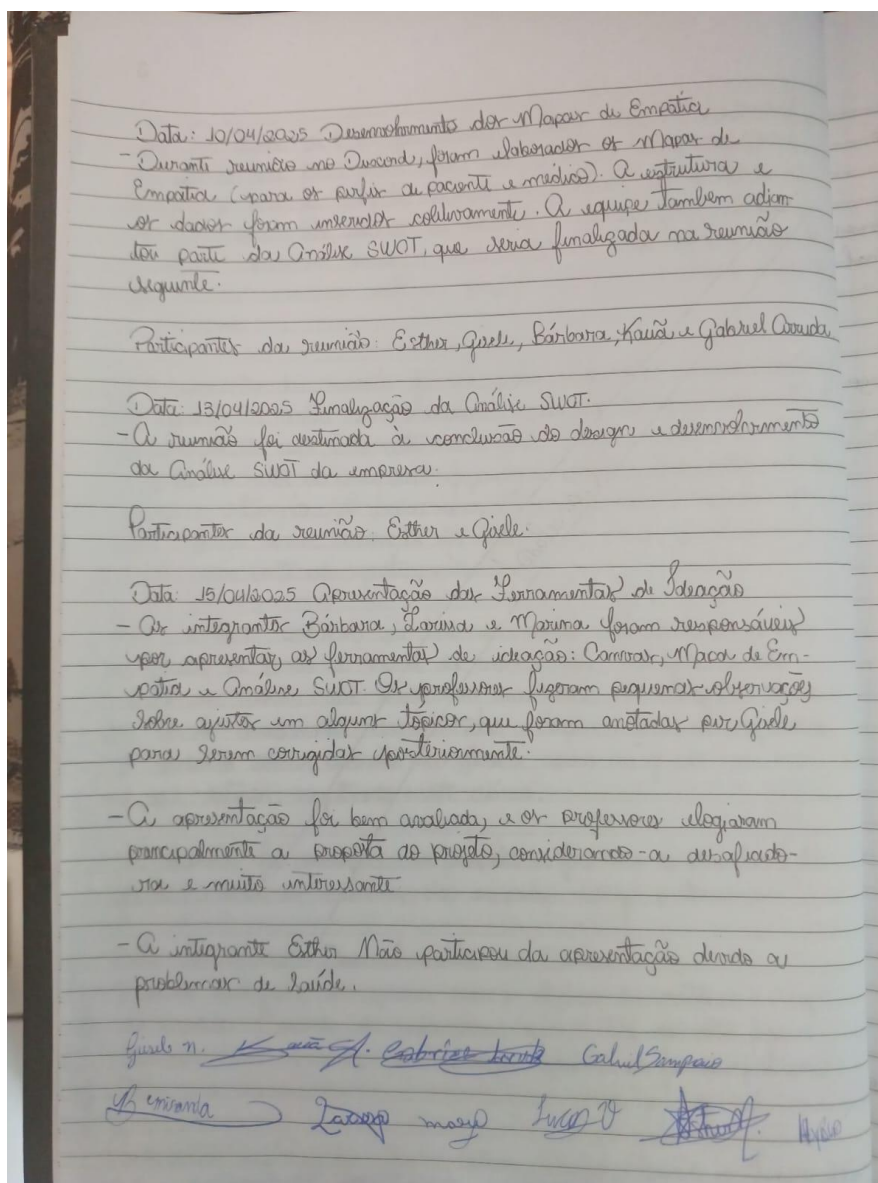 Data: 10/04/2025 Desenvolvimento dos Mapas de Empatia
- Durante reunião no Discord, foram elaborados os Mapas de
Empatia (para os perfis de paciente e médico). A estrutura e
os dados foram inseridos coletivamente. A equipe também adian-
tou parte da Análise SWOT, que seria finalizada na reunião
seguinte.
Participantes da reunião: Esther, Gisele, Bárbara, Kauã e Gabriel Arruda
Data: 13/04/2025 Finalização da Análise SWOT.
- A reunião foi destinada à conclusão do design e desenvolvimento
da Análise SWOT da empresa.
Participantes da reunião: Esther e Gisele.
Data: 15/04/2025 Apresentação das Ferramentas de Ideação
- As integrantes Bárbara, Larissa e Marina foram responsáveis
por apresentar as ferramentas de ideação: Canvas, Mapa de Em-
patia e Análise SWOT. Os professores fizeram pequenas observações
sobre ajustes em alguns tópicos, que foram anotadas por Gisele
para serem corrigidas posteriormente.
- A apresentação foi bem avaliada, e os professores elogiaram
principalmente a proposta do projeto, considerando-a desafiado-
ra e muito interessante
- A integrante Esther Não participou da apresentação devido a
problemas de saúde.
Gisele n. Kauã Gabriel Sampaio
B miranda Lucas V